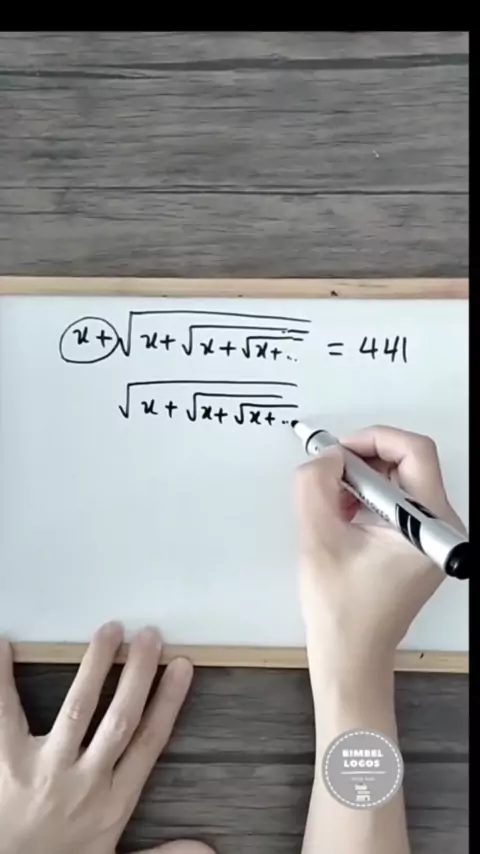 x+√x+√x+√x+... = 441
√x+√x+√x+...
BIMBEL
LOGOS